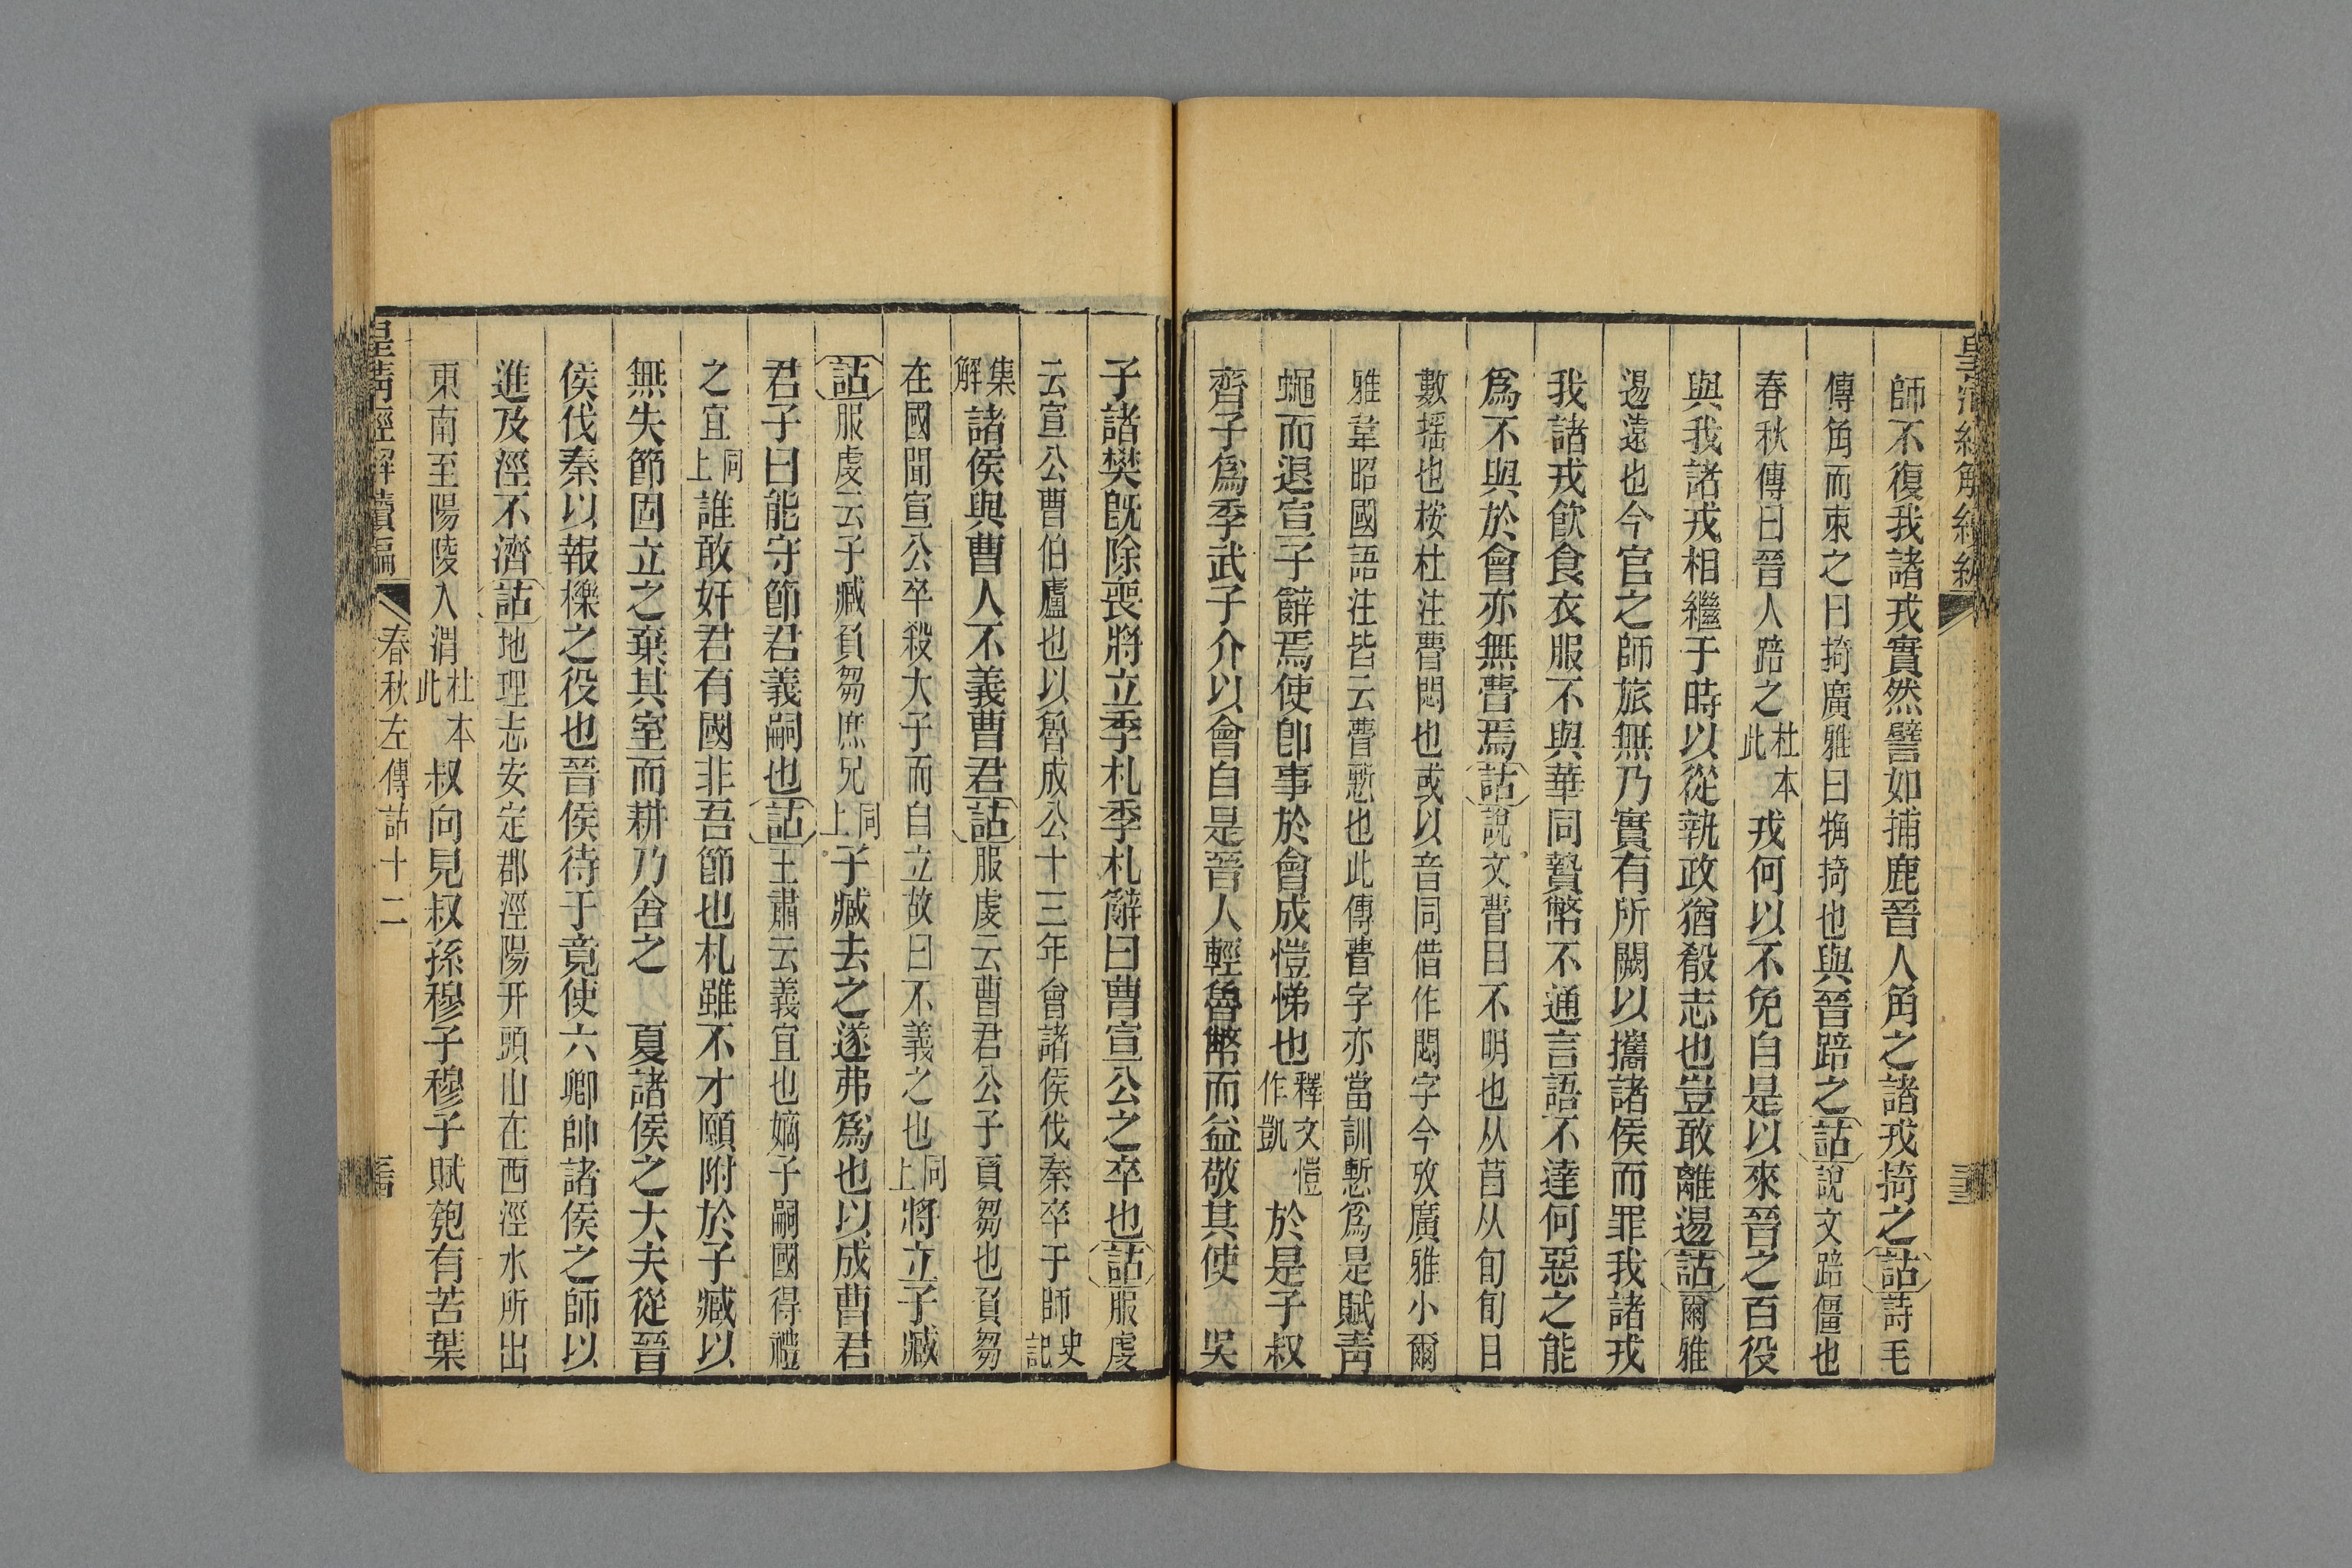 師不復我諸戎實然譬如捕鹿晉人角之諸戎掎之詁詩毛
傳角而束之曰掎廣雅曰㧢掎也與晉踣之詁說文踣僵也
春秋傳曰晉人踣之杜本此戎何以不免自是以來晉之百役
與我諸戎相繼于時以從執政猶殽志也豈敢離逷詁爾雅
逷遠也今官之師旅無乃實有所闕以攜諸侯而罪我諸戎
我諸戎飮食衣服不與華同贄幣不通言語不達何惡之能
爲不與於會亦無瞢焉詁說文瞢目不明也从苜从旬旬目
數搖也桉杜注瞢悶也或以音同借作悶字今攷廣雅小爾
雅韋昭國語注皆云瞢慙也此傳瞢字亦當訓慙爲是賦靑
蠅而退宣子辭焉使卽事於會成愷悌也釋文愷作凱於是子叔
齊子爲季武子介以會自是晉人輕魯幣而益敬其使　吳
子諸樊旣除喪將立季札季札辭曰曹宣公之卒也詁服虔
云宣公曹伯廬也以魯成公十三年會諸侯伐秦卒于師史記
集解諸侯與曹人不義曹君詁服虔云曹君公子負芻也負芻
在國聞宣公卒殺大子而自立故曰不義之也同上將立子臧
詁服虔云子臧負芻庶兄同上子臧去之遂弗爲也以成曹君
君子曰能守節君義嗣也詁王肅云義宜也嫡子嗣國得禮
之宜同上誰敢奸君有國非吾節也札雖不才願附於子臧以
無失節固立之棄其室而耕乃舍之　夏諸侯之大夫從晉
侯伐秦以報櫟之役也晉侯待于竟使六卿帥諸侯之師以
進及涇不濟詁地理志安定郡涇陽幵頭山在西涇水所出
東南至陽陵入渭杜本此叔向見叔孫穆子穆子賦匏有苦葉
皇淸經解續編　春秋左傳詁十二